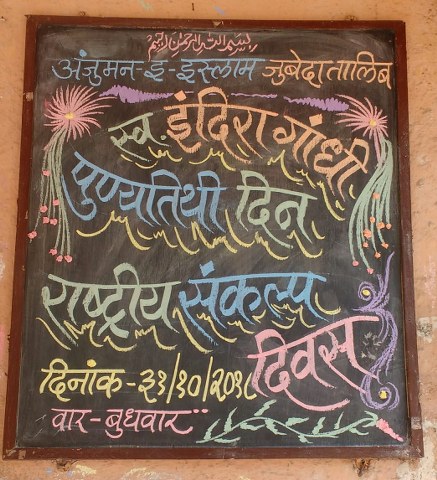 بسم الله الرحمن الرحيم
अंजुमन-इ-इस्लाम जुबेदा तालिब
स्व. इंदिरा गांधी
पुण्यतिथी दिन
राष्ट्रीय संकल्प
दिवस
दिनांक-३१/१०/२०१८
वार-बुधवार